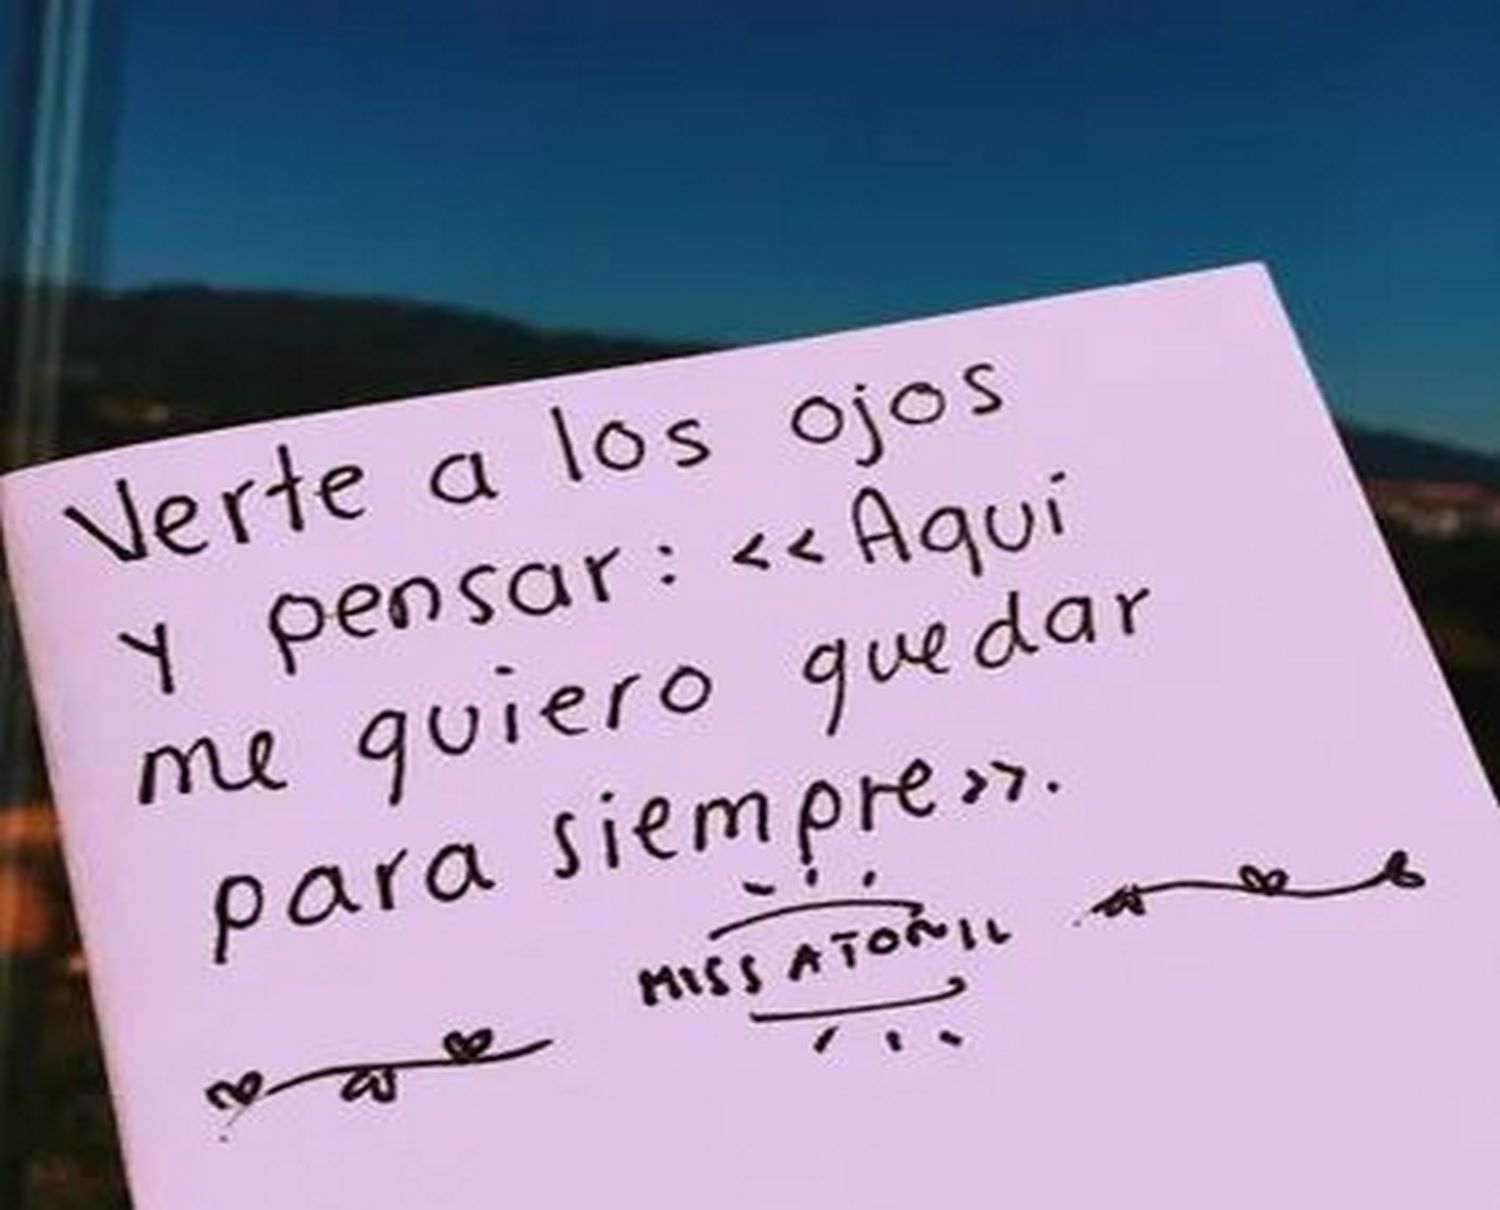 Verte a los ojos
y pensar: <<Aquí
me quiero quedar
para siempre>>.
MISS ATOÑIL